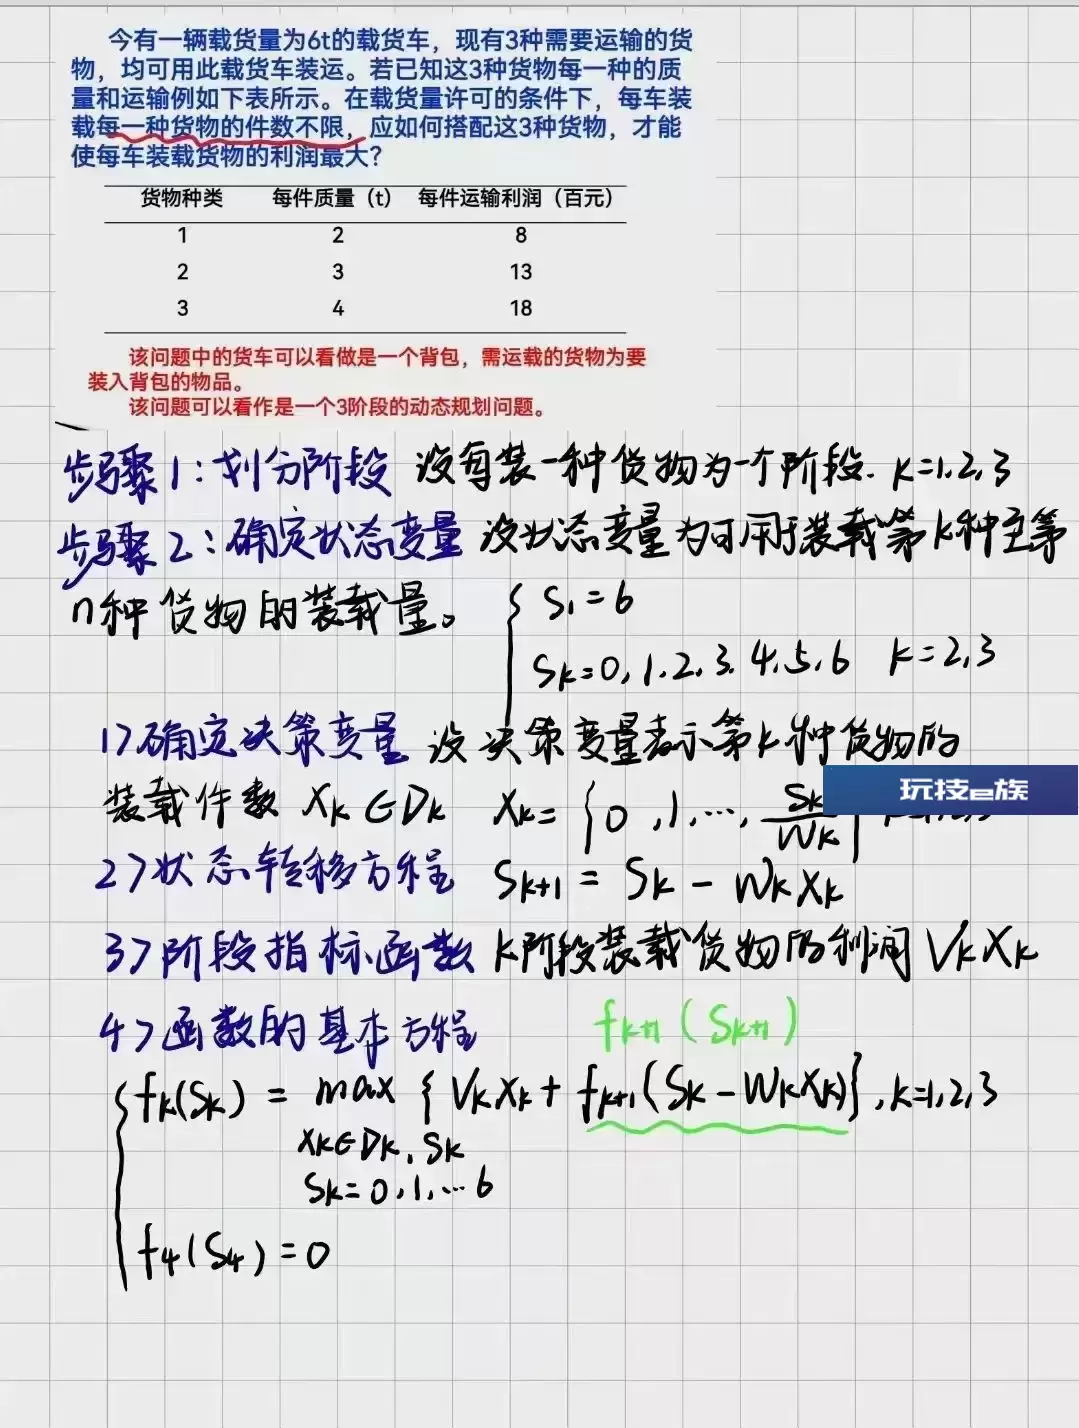 今有一辆载货量为6t的载货车，现有3种需要运输的货
物，均可用此载货车装运。若已知这3种货物每一种的质
量和运输例如下表所示。在载货量许可的条件下，每车装
载每一种货物的件数不限，应如何搭配这3种货物，才能
使每车装载货物的利润最大？
货物种类 每件质量（t） 每件运输利润（百元）
1 2 8
2 3 13
3 4 18
该问题中的货车可以看做是一个背包，需运载的货物为要
装入背包的物品。
该问题可以看作是一个3阶段的动态规划问题。
步骤1：划分阶段 设每装一种货物为一个阶段. k=1,2,3
步骤2：确定状态变量 设状态变量为可用于装载第k种至第
n种货物的装载量。 { S₁=6
Sk=0,1,2,3,4,5,6 k=2,3
1>确定决策变量 设决策变量表示第k种货物的
装载件数 Xk∈Dk Xk={0,1,…,Sk/Wk}
玩技e族
2>状态转移方程 Sk+1 = Sk - WkXk
3>阶段指标函数 k阶段装载货物的利润 VkXk
4>函数的基本方程 fk+1(Sk+1)
{ fk(Sk) = max { VkXk + fk+1(Sk-WkXk)}, k=1,2,3
Xk∈Dk, Sk
Sk=0,1,…6
f4(S4)=0